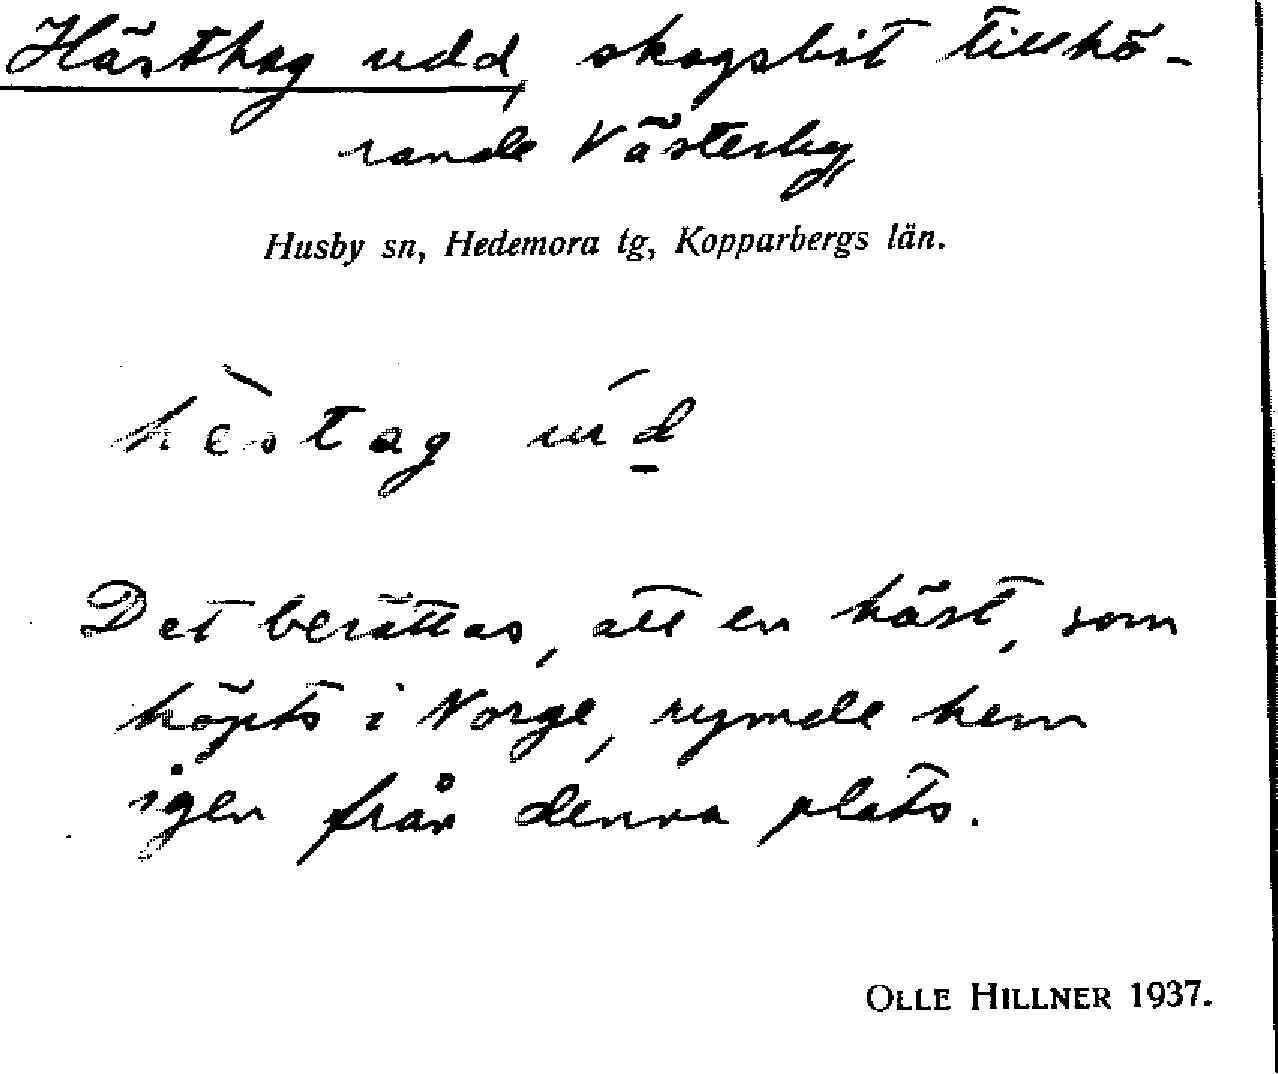 Hästhag udd, skogsbit tillhö-
rande Västerby,
Husby sn, Hedemora tg, Kopparbergs län.
hèstag úd
Det berättas, att en häst, som
köpts i Norge, rymde hem
igen från denna plats.
OLLE HILLNER 1937.